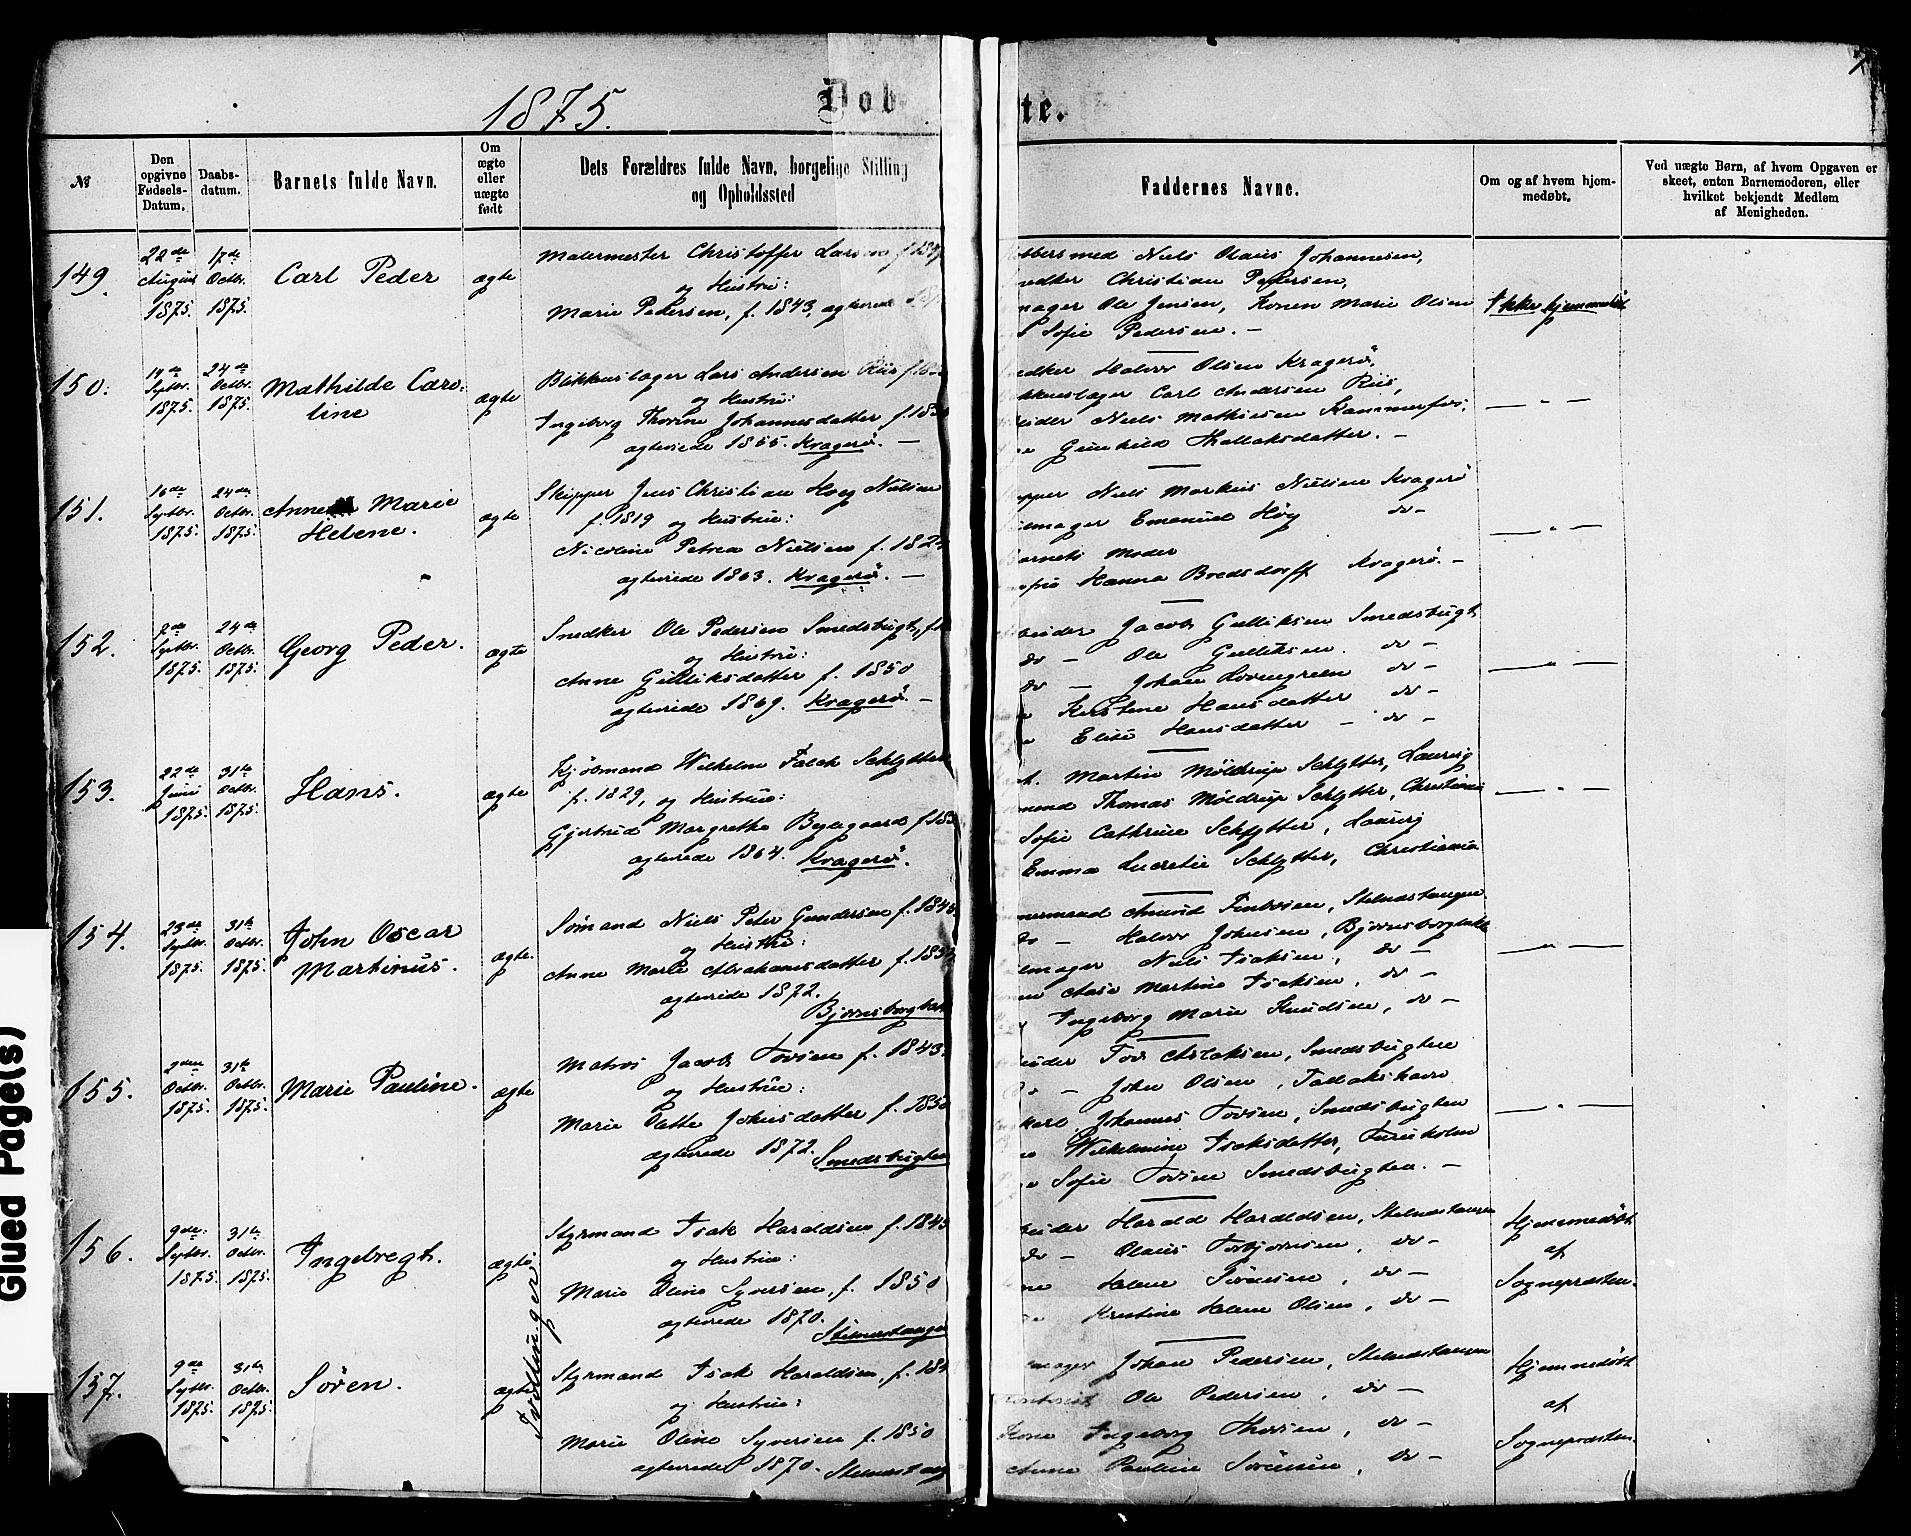 1875.
Døbte.
7
№
Den opgivne Fødsels-Datum.
Daabs-datum.
Barnets fulde Navn.
Om ægte eller uægte født
Dets Forældres fulde Navn, borgelige Stilling og Opholdssted
Faddernes Navne.
Om og af hvem hjem-medøbt.
Ved uægte Børn, af hvem Opgaven er skeet, enten Barnemoderen, eller hvilket bekjendt Medlem af Menigheden.
149.
22de August 1875.
17de Octbr. 1875.
Carl Peder
ægte
Malermester Christoffer Larsen f.
og Hustru:
Marie Pedersen, f. 1843, ægteviede
Niels Olaus Johannesen,
Christian Pedersen,
Ole Jensen, Konen Marie Olsen
Sofie Pedersen. —
Ikke hjemmedøbt
150.
19de Septbr. 1875.
24de Octbr. 1875.
Mathilde Caro-
line
ægte
Blikkenslager Lars Andersen Riis
og Hustru:
Ingeborg Thorine Johannesdatter f.
ægteviede 1855. Kragerø. —
Halvor Olsen Kragerø,
Carl Andersen Riis,
Niels Mathiesen Kammerfos,
Gunhild Thallaksdatter. —
— " —
151.
16de Septbr. 1875.
24de Octbr. 1875.
Anne Marie
Helene.
ægte
Skipper Jens Christian Høeg Nielsen
f. 1819 og Hustru:
Nicoline Petrea Nielsen f. 182
ægteviede 1863. Kragerø. —
Niels Markus Nielsen Kragerø
Emanuel Høy do —
Barnets Moder
Hanna Bredsdorff Kragerø. —
— " —
152.
Septbr. 1875.
24de Octbr. 1875.
Georg Peder.
ægte
Snedker Ole Pedersen Smedsbugt,
og Hustru:
Anne Gulliksdatter f. 1850
ægteviede 1869. Kragerø. —
Jacob Gulliksen Smedsbugt
do — Ole Gulliksen. do —
do — Johan Lövengreen do —
Kerstene Hansdatter do —
Elise Hansdatter — do —
— " —
153.
22de Juni 1875.
31te Octbr. 1875.
Hans.
ægte
Kjøbmand Wilhelm Falck Schlytter
f. 1829, og Hustru:
Gjertrud Margrethe Bygegaard f. 183
ægteviede 1864. Kragerø.
Martin Møldrup Schlytter, Laurvig
Thomas Møldrup Schlytter, Christiania
Sofie Cathrine Schlytter, Laurvig
Emma Lucretie Schlytter, Christiania
— " —
154.
23de Septbr. 1875.
31te Octbr. 1875.
John Oscar
Martinus.
ægte.
Sømand Niels Peter Gundersen f. 1845
og Hustru:
Anne Marie Abrahamsdatter f. 185
ægteviede 1872.
Bjørnsborgbak
Amund Finbosen, Stelnestangen
do — Halvor Johnsen, Bjørnsborgbak
Niels Isaksen, do —
Aase Martine Isaksen, do —
Ingeborg Marie Knudsen, do —
— " —
155.
2den Octbr. 1875.
31te Octbr. 1875.
Marie Pauline.
ægte
Matros Jacob Tovsen f. 1843.
og Hustru:
Marie Datte Johnsdatter f. 1850
ægteviede 1872. Smedsbugten
Tov Aslaksen, Smedsbugten
do — John Olsen, Tallakshavn
Johannes Tovsen, Smedsbugten
Wilhelmine Isaksdatter, Furuholm
Sofie Tovsen Smedsbugten. —
— " —
156.
9de Septbr. 1875.
31te Octbr. 1875.
Ingebregt.
ægte
Tvillinger
Styrmand Isak Haraldsen f. 1845
og Hustru:
Marie Oline Syversen, f. 1850
ægteviede 1870.
Stelnestangen
Harald Haraldsen, Stelnestangen
do — Olaus Torbjørnsen, do —
Helene Sørensen, do —
Kristine Helene Olsen, do —
Hjemmedøbt
af
Sognepræsten.
157.
9de Septbr. 1875.
31te Octbr. 1875.
Søren.
ægte
Styrmand Isak Haraldsen, f. 184
og Hustru:
Marie Oline Syversen f. 1850
ægteviede 1870. Stelnestang
Johan Pedersen, Stelnestangen
Ole Pedersen, do —
Kone Ingeborg Thovsen, do —
Anne Pauline Sørensen, do —
Hjemmedøbt
af
Sognepræsten.
Glued Page(s)